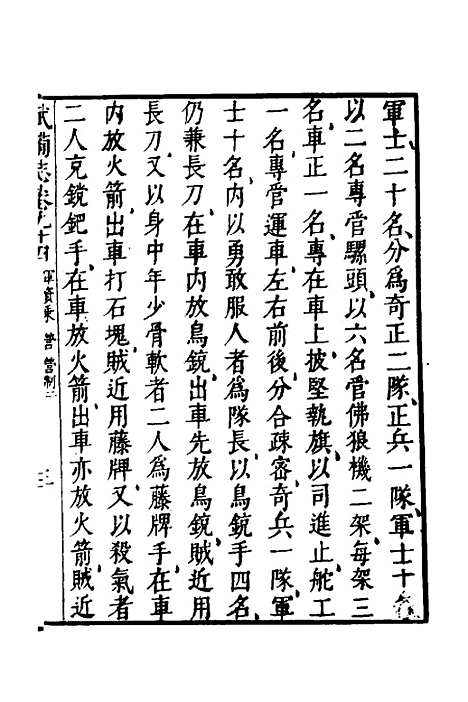 軍士二十名、分爲奇正二隊、正兵一隊、軍士十名
以二名專管騾頭、以六名管佛狼機二架、每架三
名、車正一名、專在車上披堅執旗、以司進止、舵工
一名、專管運車左右前後分合疎密、奇兵一隊、軍
士十名、內以勇敢服人者爲隊長、以鳥銃手四名、
仍兼長刀、在車內放鳥銃、出車先放鳥銃、賊近用
長刀、又以身中年少骨軟者二人爲藤牌手、在車
內放火箭、出車打石塊、賊近用藤牌、又以殺氣者
二人克鏜鈀手、在車放火箭、出車亦放火箭、賊近
武備志卷九十四 軍資乘 營 營制三 三